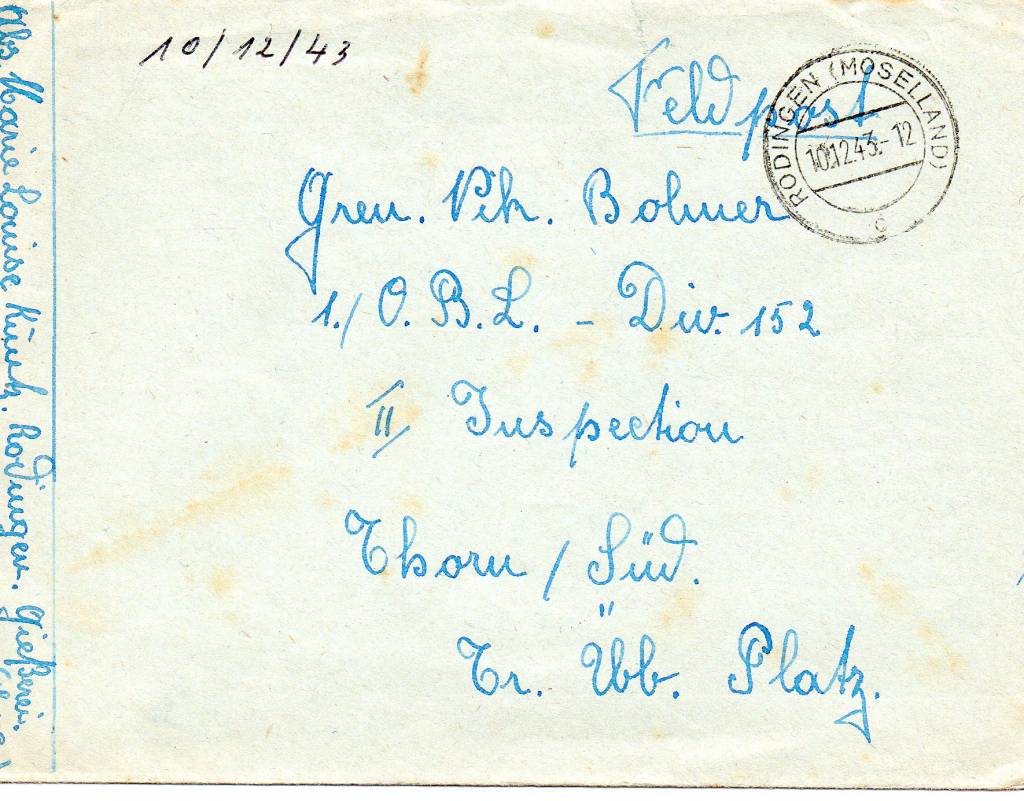 10/12/43
Feldpost
RODINGEN (MOSELLAND)
10.12.43.-12
c
Gren. Vik. Bohner
1./O.B.L. - Div. 152
II Inspection
Thorn / Süd.
Tr. Üb. Platz.
Abs. Marie Louise Rodingen. Gießerei.